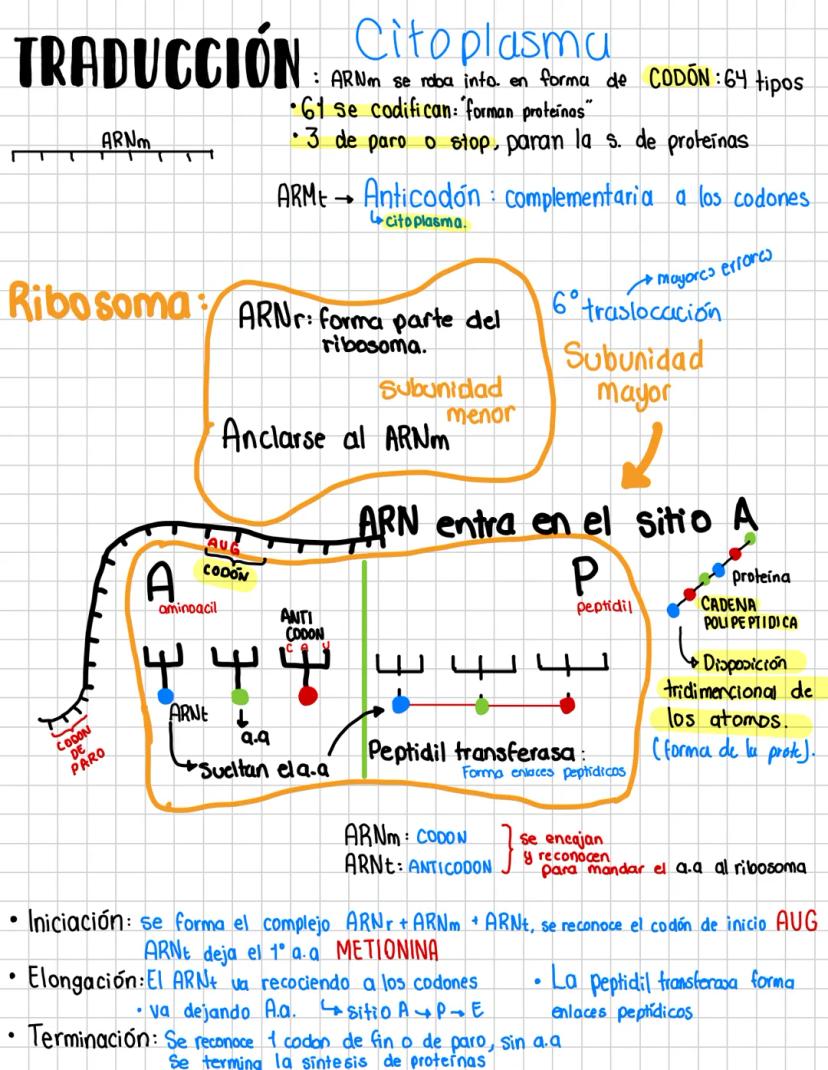 Citoplasma
TRADUCCIÓN : ARNm se roba info. en forma de CODÓN: 64 tipos
• 61 se codifican: "forman proteínas"
• 3 de paro o stop, paran la s. de proteínas
ARNm
ARMt → Anticodón: complementaria a los codones
↳ citoplasma.
Ribosoma:
ARNr: forma parte del
ribosoma.
subunidad
menor
Anclarse al ARNm
→ mayores errores
6° traslocación
Subunidad
mayor
ARN entra en el sitio A
AUG
CODÓN
A
aminoacil
ANTI
CODON
C A U
P
peptidil
proteína
CADENA
POLIPEPTIDICA
↳ Disposición
tridimencional de
los atomos.
(forma de la prote).
CODON
DE
PARO
ARNt
a.a
→ sueltan el a.a
Peptidil transferasa:
Forma enlaces peptídicos
ARNm: CODON
ARNt: ANTICODON
se encajan
y reconocen
para mandar el a.a al ribosoma
• Iniciación: se forma el complejo ARNr + ARNm + ARNt, se reconoce el codón de inicio AUG
ARNt deja el 1° a.a METIONINA
• Elongación: El ARNt va recociendo a los codones
• va dejando A.a. ↳ sitio A → P → E
• La peptidil transferasa forma
enlaces peptídicos
• Terminación: Se reconoce 1 codon de fin o de paro, sin a.a
Se termina la síntesis de proteínas